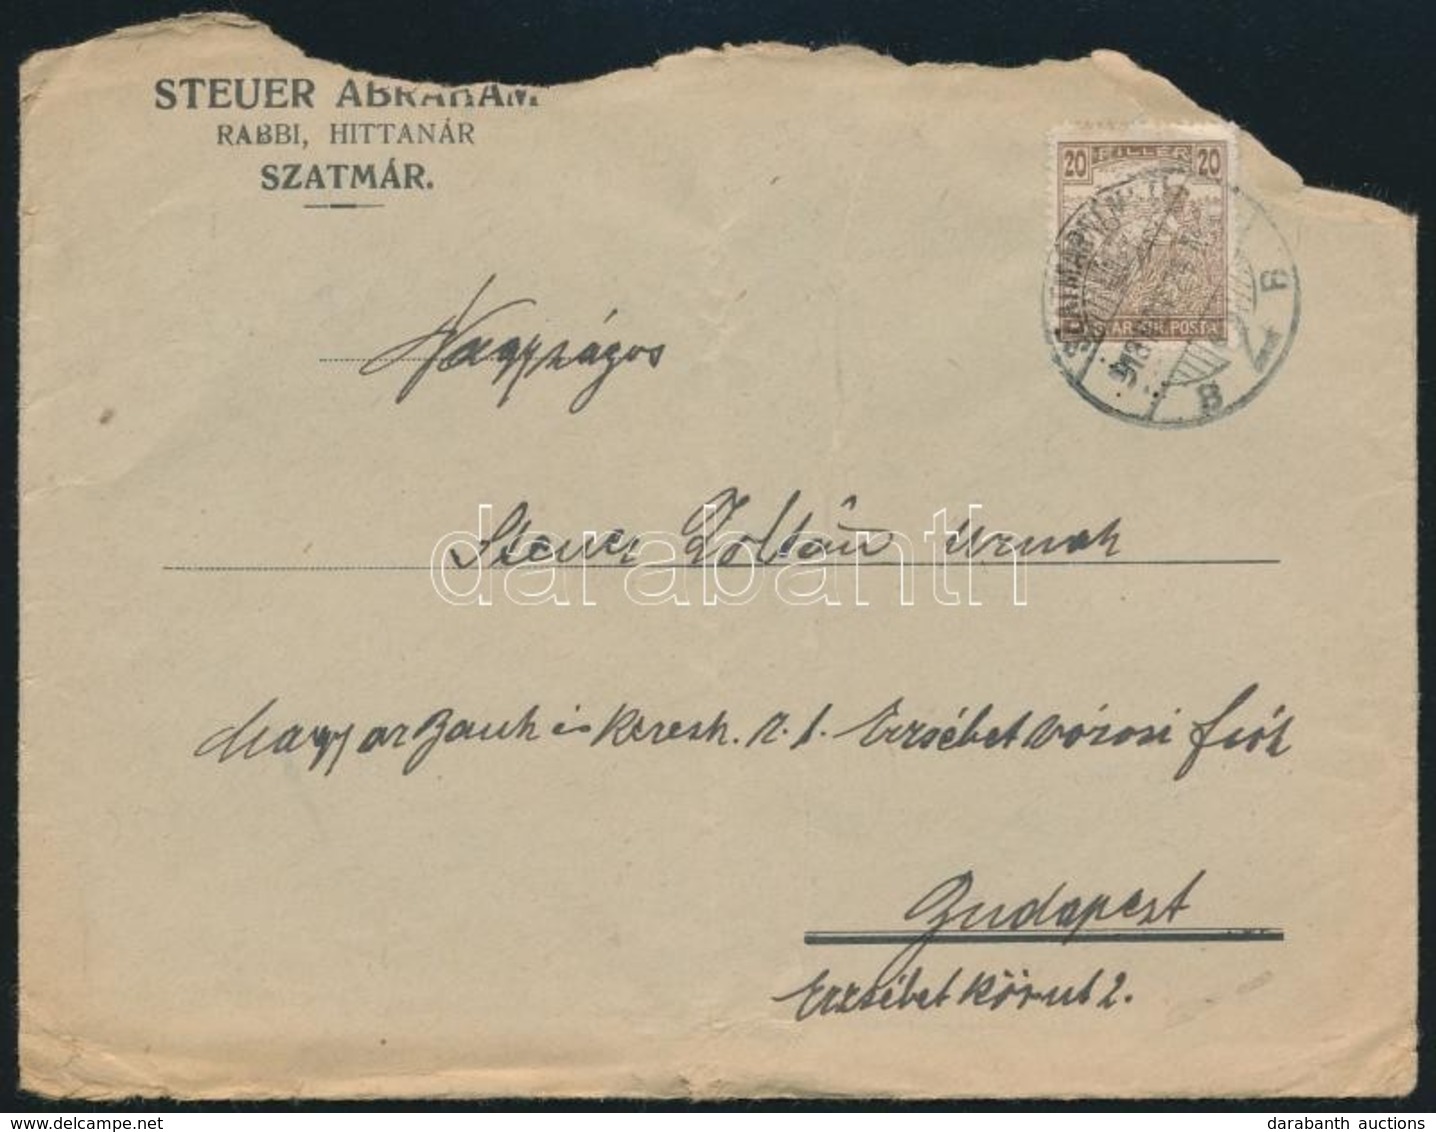 STEUER ABRAHAM
RABBI, HITTANÁR
SZATMÁR.
20 FILLER 20
MAGYAR KIR. POSTA
SZATMÁRNÉMETI
B
Nagyságos
Steuer Zoltán úrnak
Magyar Bank és Keresk. r. t. Erzsébetvárosi fiók
Budapest
Erzsébet körut 2.
darabanth
delcampe.net
darabanth auctions